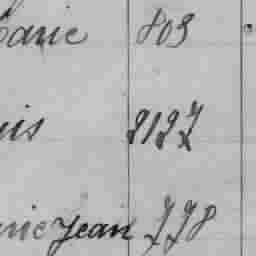 Marie 809
uis 2127
rie Jean 778